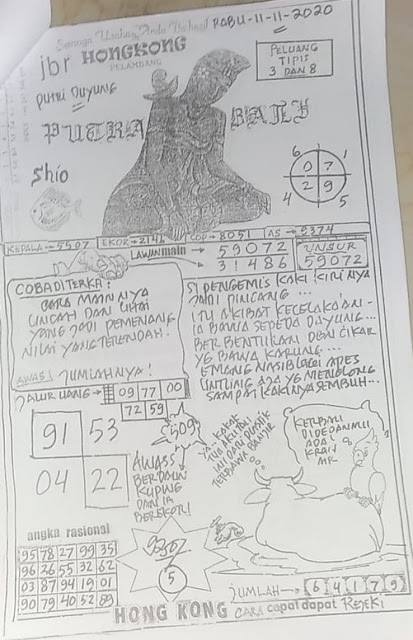 Semoga Usaha Anda Berhasil
RABU-11-11-2020
jbr HONGKONG
PELAMBANG
PELUANG
TIPIS
3 DAN 8
PUTRI DUYUNG
PUTRA BALI
Shio
6 0 7 1
4 2 9 5
KEPALA=5907 EKOR=2141 COP=8051 AS=9374
LAWAN main → 59072
31486
UNSUR
59072
COBA DITERKA:
CARA MAINNYA
LINCAH DAN LIHAI
YANG JADI PEMENANG
NILAI YANG TERENDAH.
AWAS! JUMLAHNYA!
SI PENGEMIS KAKI KIRINYA
JADI PINCANG...
ITU AKIBAT KECELAKAAN-
IA BAWA SEPEDA DAYUNG...
BERBENTUKAN DENGAN CIKAR
YG BAWA KARUNG...
EMANG NASIB LAGI APES
UNTUNG ADA YG MENOLONG
SAMPAI KAKINYA SEMBUH...
JALUR UANG → 09 77 00
72 59
91 53
04 22
509
AWASS
BERDAUN
KUPING
DAN IA
BEREKOR!
YA-KAKAK
INI DARI PLASTIK
TERBAWA BANJIR
KEMBALI
DIDEPANMU
ADA
KRAIN
angka rasional
95 78 27 99 35
96 36 55 32 62
03 87 94 19 01
90 79 40 52 89
5
JUMLAH → 6 4 1 7 9
HONG KONG CARA capat dapat REJEKI